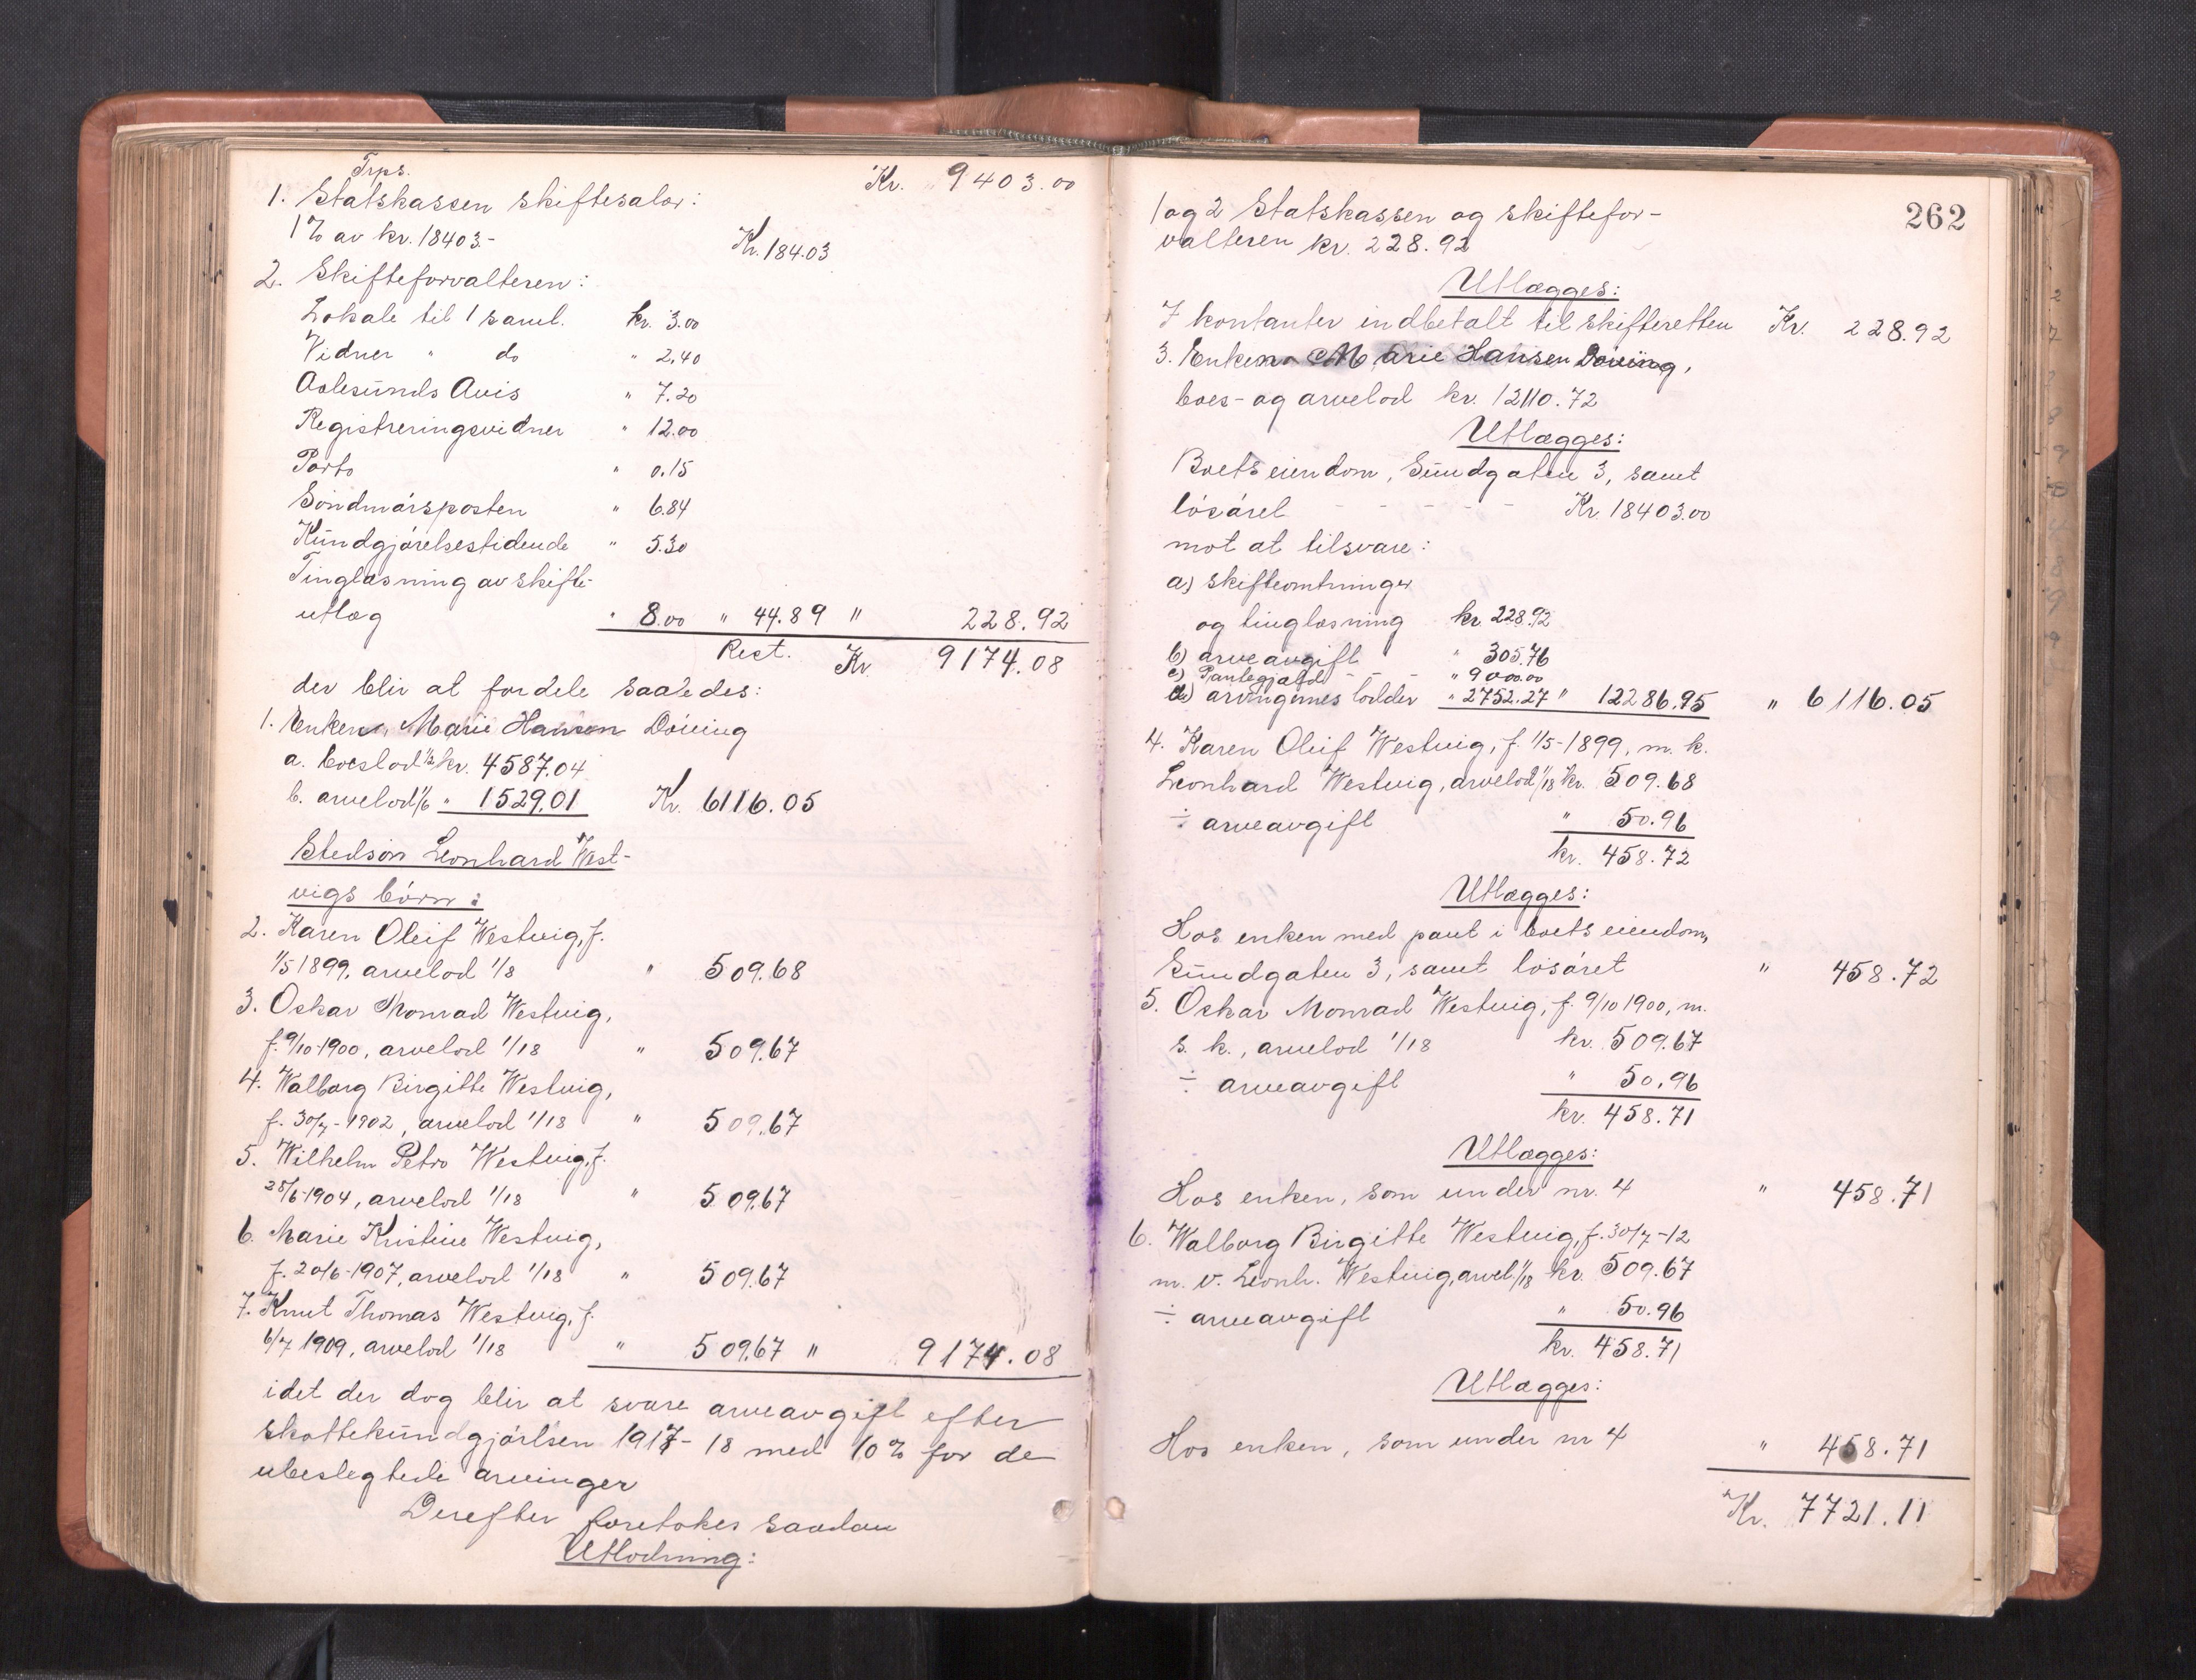 Trps. Kr. 9403.00
1. Statskassen skiftesalær:
1% av kr. 18403.- Kr. 184.03
2. Skifteforvalteren:
Lokale til 1 saml. kr. 3.00
Vidner " do " 2,40
Aalesunds Avis " 7.20
Registreringsvidner " 12.00
Porto " 0.15
Søndmørsposten " 6.84
Kundgjørelsestidende " 5.30
Tinglæsning av skifte-
utlæg " 8.00 " 44.89 " 228.92
Rest. Kr 9174.08
der blir at fordele saaledes:
1. Enken, Marie Hansen Døving
a. boeslod 1/2 kr. 4587.04
b. arvelod 1/6 " 1529,01 Kr. 6116.05
Stedsøn Leonhard West-
vigs børn:
2. Karen Oleif Westvig, f.
1/5 1899, arvelod 1/8 " 509.68
3. Oskar Monrad Westvig,
f. 9/10-1900, arvelod 1/18 " 509.67
4. Walborg Birgitte Westvig,
f. 30/7-1902, arvelod 1/18 " 509.67
5. Wilhelm Petro Westvig, f.
28/6-1904, arvelod 1/18 " 509.67
6. Marie Kristine Westvig,
f. 20/6-1907, arvelod 1/18 " 509.67
7. Knut Thomas Westvig, f.
6/7 1909, arvelod 1/18 " 509.67 " 9174.08
idet der dog blir at svare arveavgift efter
skattekundgjørlsen 1917-18 med 10% for de
ubeslegtede arvinger
Derefter foretokes saadan
Utlodning:
262
1 og 2 Statskassen og skiftefor-
valteren kr. 228.92
Utlægges:
I kontanter indbetalt til skifteretten Kr. 228.92
3. Enken Marie Hansen Døving,
boes- og arvelod kr. 12110.72
Utlægges:
Boets eiendom, Sundgaten 3, samt
løsøret - - - - - Kr. 18403.00
mot at tilsvare:
a) skifteomkninger
og tinglæsning kr. 228.92
b) arveavgift " 305.76
c) Pantegjæld - - " 9000.00
d) arvingernes lodder " 2752.27 " 12286.95 " 6116.05
4. Karen Oleif Westvig, f. 1/5-1899, m. k.
Leonhard Westvig, arvelod 1/18 kr. 509.68
÷ arveavgift " 50.96
kr. 458.72
Utlægges:
Hos enken med pant i boets eiendom,
Sundgaten 3, samt løsøret " 458.72
5. Oskar Monrad Westvig, f. 9/10 1900, m.
s. k., arvelod 1/18 kr. 509.67
÷ arveavgift " 50.96
kr. 458.71
Utlægges:
Hos enken, som under nr. 4 " 458.71
6. Walborg Birgitte Westvig, f. 30/7-12
m. v. Leonh. Westvig, arvel. 1/18 kr. 509.67
÷ arveavgift " 50.96
kr. 458.71
Utlægges:
Hos enken, som under nr 4 " 458.71
Kr. 7721.11